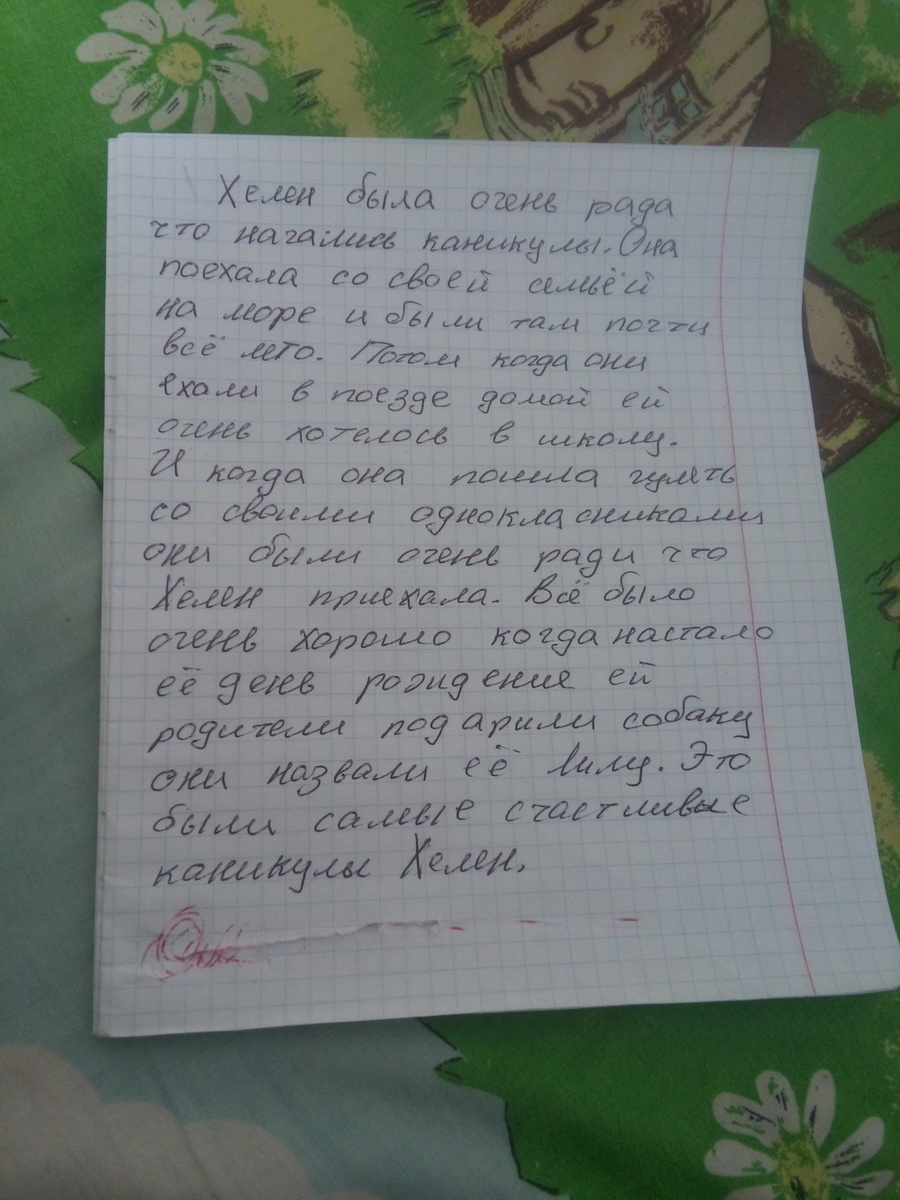 Хелен была очень рада
что начались каникулы. Она
поехала со своей семьёй
на море и были там почти
всё лето. Потом когда они
ехали в поезде домой ей
очень хотелось в школу.
И когда она пошла гулять
со своими однокласниками
они были очень ради что
Хелен приехала. Всё было
очень хорошо когда настало
её день рождение ей
родители подарили собаку
они назвали её Лилу. Это
были самые счастливые
каникулы Хелен.